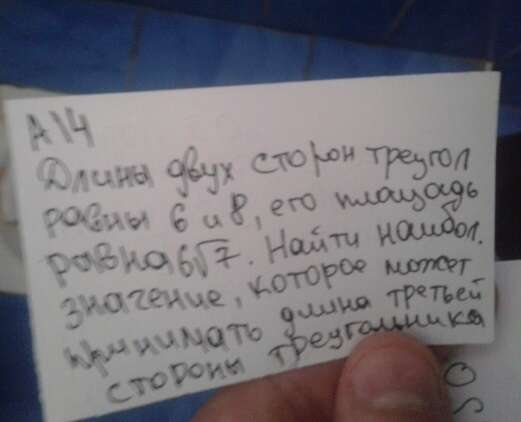 А14
Длины двух сторон треугол
равны 6 и 8, его площадь
равна 6√7. Найти наибол.
значение, которое может
принимать длина третьей
стороны треугольника